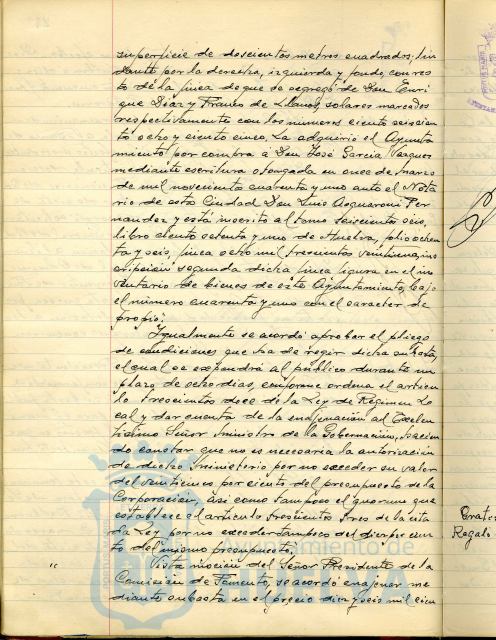 superficie de doscientos metros cuadrados; lin
dante por la derecha, izquierda y fondo, con res
to de la finca de que se segregó de Don Enri
que Díaz y Franco de Llanos, solares marcados
respectivamente con los números ciento seiscien
ocho y ciento cinco. La adquirió el Ayunta
miento por compra á Don José García Vazquez
mediante escritura otorgada en once de marzo
de mil novecientos cuarenta y uno ante el Nota
rio de esta Ciudad Don Luis Acquaroni Fer
nandez y está inscrito al tomo seiscientos seis,
libro ciento setenta y uno de Huelva, folio ochen
ta y seis, finca ocho mil trescientos veintiuna, ins
cripción segunda dicha finca figura en el in
ventario de bienes de este Ayuntamiento, bajo
el número cuarenta y uno con el caracter de
propio.
Igualmente se acordó aprobar el pliego
de condiciones que ha de regir dicha subasta,
el cual se expondrá al público durante un
plazo de ocho dias, conforme ordena el artícu
lo trescientos doce de la Ley de Regimen Lo
cal y dar cuenta de la enajenación al Excelen
tísimo Señor Ministro de la Gobernación, hacien
do constar que no es necesaria la autorización
de dicho Ministerio por no exceder su valor
del veinticinco por ciento del presupuesto de la
Corporación, así como tampoco el quorum que
establece el artículo trescientos tres de la cita
da Ley por no exceder tampoco del diez por cien
to del mismo presupuesto.
Vista moción del Señor Presidente de la
Comisión de Fomento, se acordó enajenar me
diante subasta en el precio diez y seis mil cien
Regalo
Ayuntamiento de
HUELVA